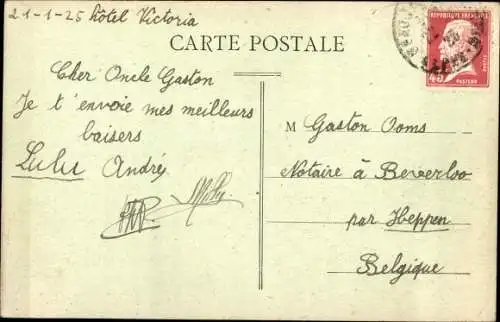 21-1-25 hôtel Victoria
CARTE POSTALE
Cher Oncle Gaston
Je t'envoie mes meilleurs
baisers
Lulu André
M Gaston Ooms
Notaire à Beverloo
par Heppen
Belgique
REPUBLIQUE FRANÇAISE
45
POSTES
PASTEUR